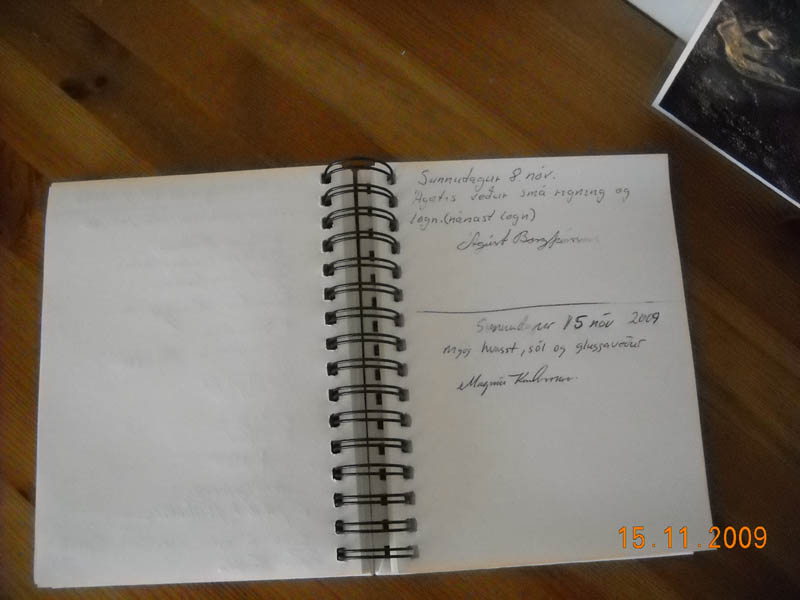 Sunnudagur 8. nóv.
Ágætis veður smá rigning og
logn. (nánast logn)
Ágúst
Sunnudagur 15 nóv 2009
Mjög hvasst, sól og gluggaveður
Magnús
15.11.2009